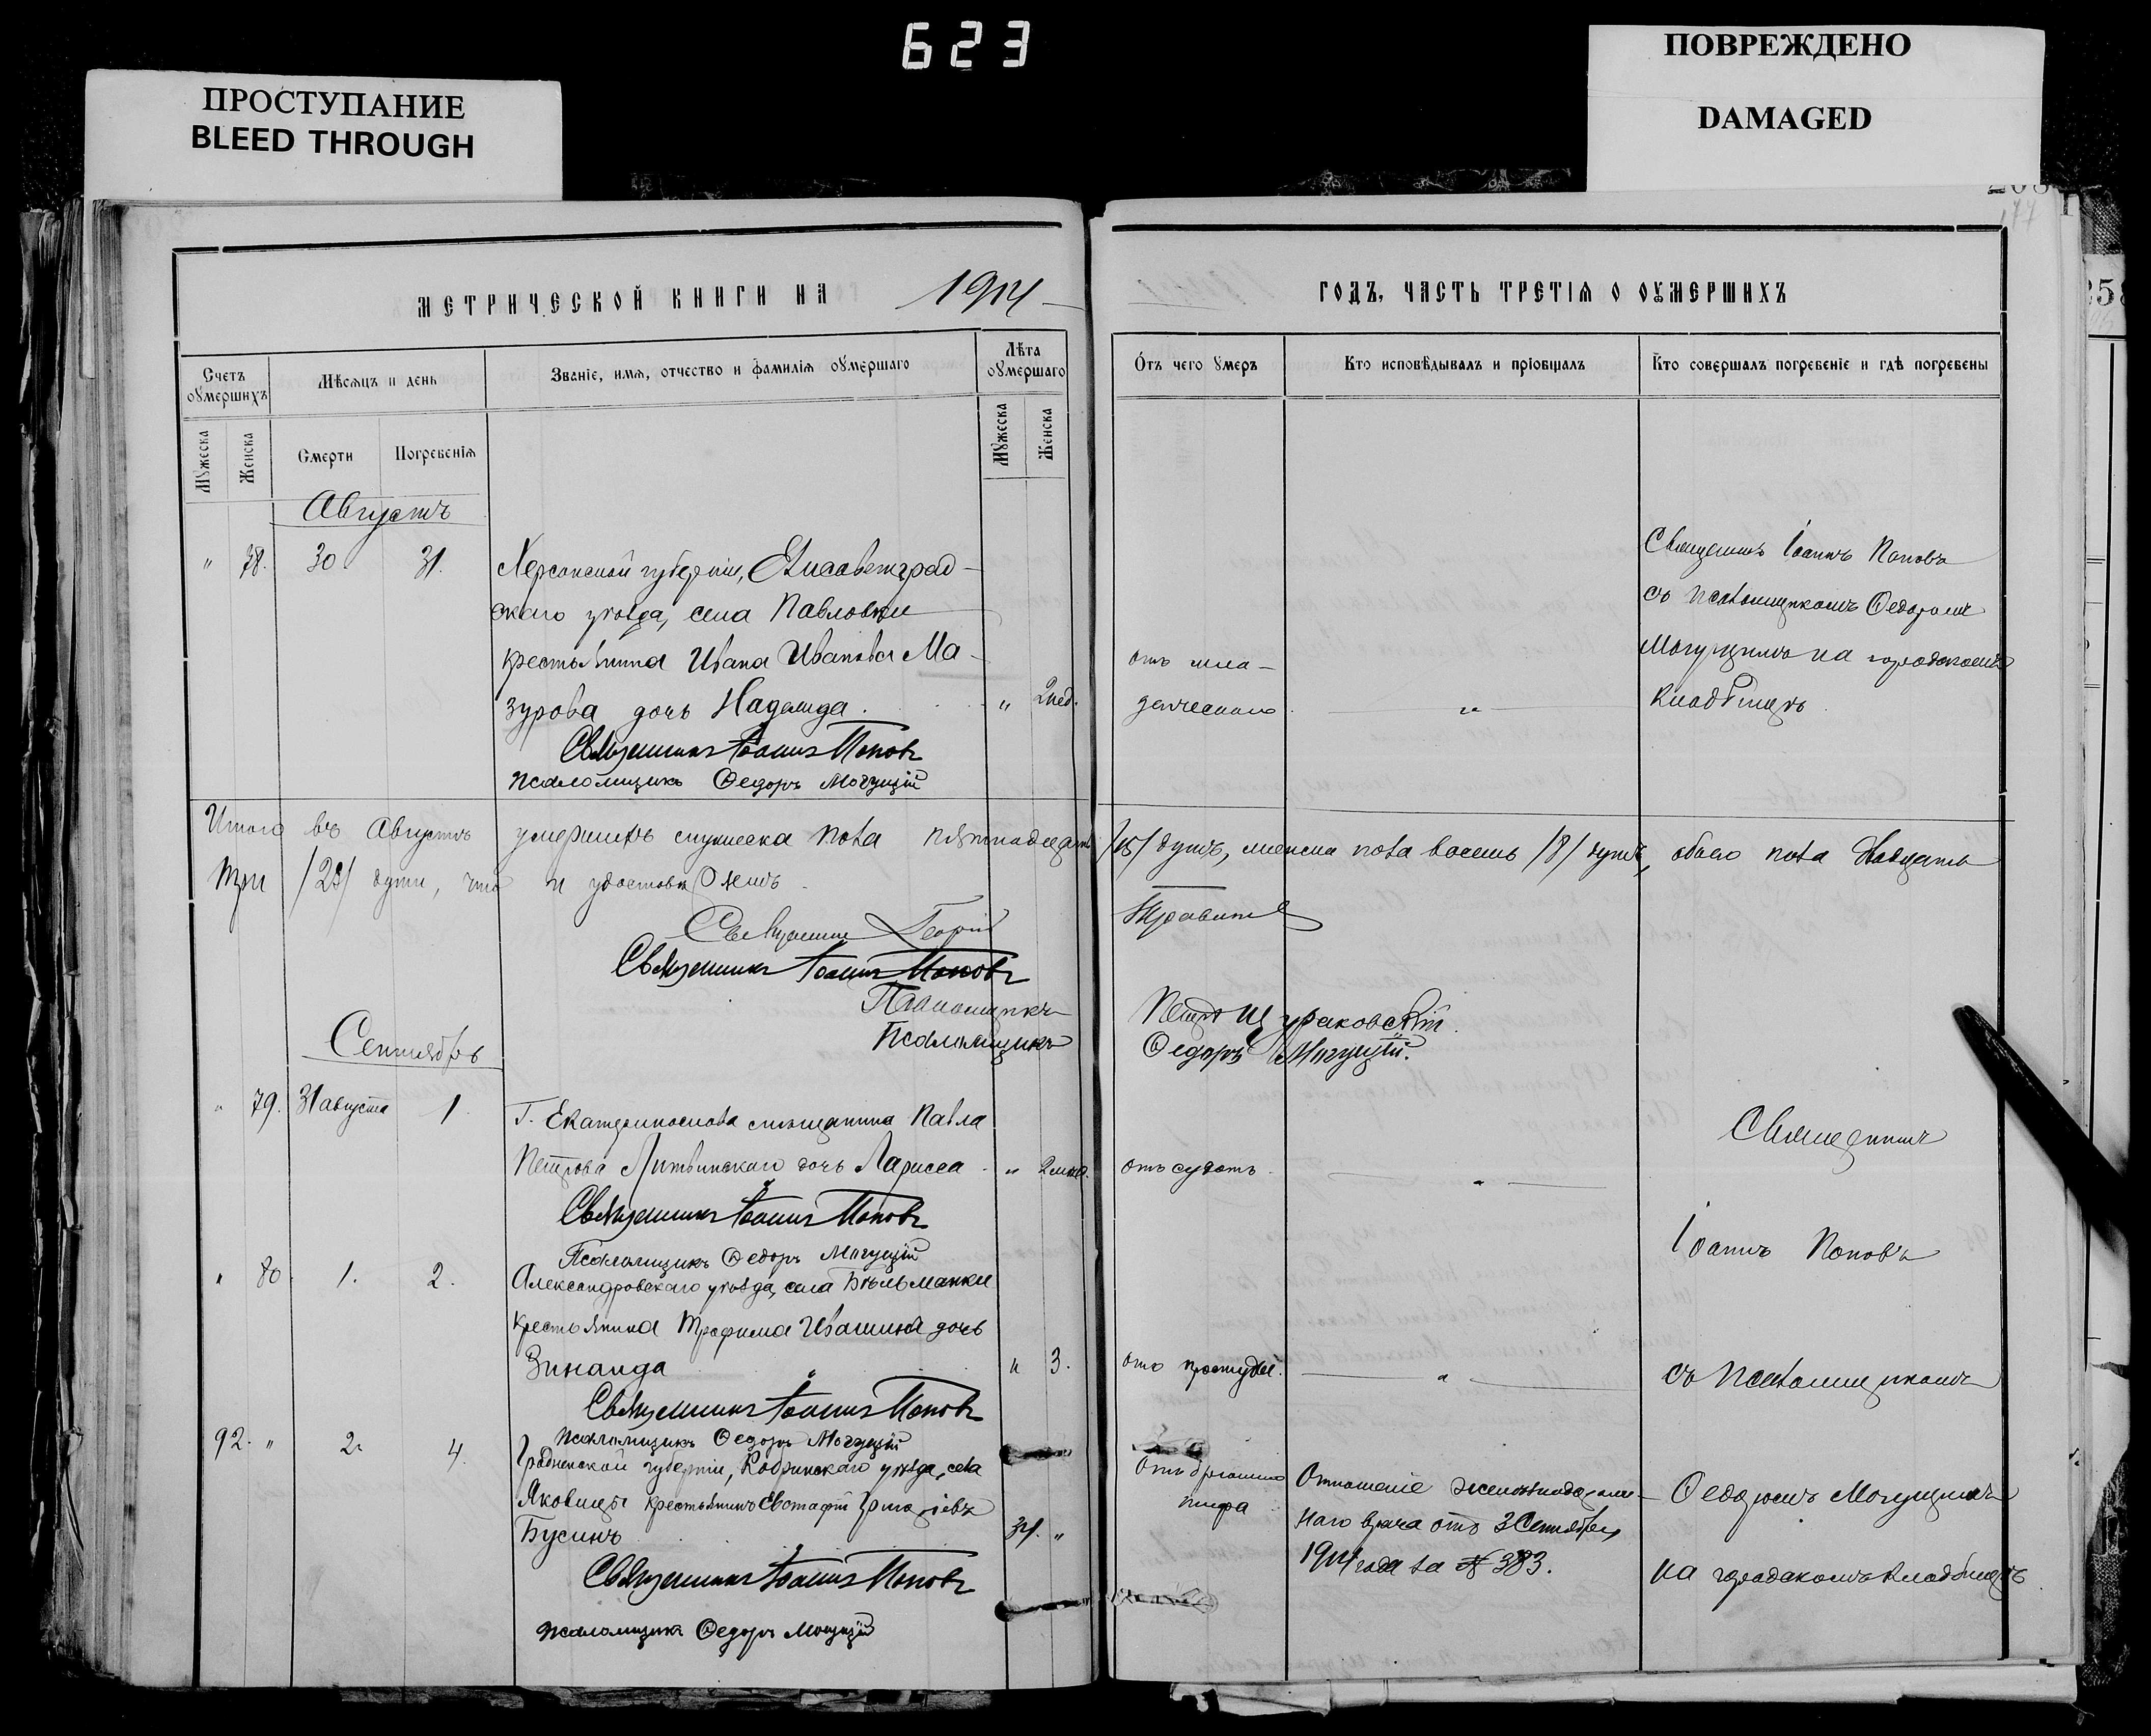 623
ПРОСТУПАНИЕ
BLEED THROUGH
ПОВРЕЖДЕНО
DAMAGED
177
МЕТРИЧЕСКОЙ КНИГИ НА 1914
ГОДЪ, ЧАСТЬ ТРЕТІЯ О ОУМЕРШИХЪ
Счетъ оумершихъ
Мѣсяцъ и день
Званіе, имя, отчество и фамилія оумершаго
Лѣта оумершаго
Отъ чего умеръ
Кто исповѣдывалъ и пріобщалъ
Кто совершалъ погребеніе и гдѣ погребены
Мужеска
Женска
Смерти
Погребенія
Мужеска
Женска
Августъ
" 78. 30 31.
Херсонской губерніи, Елисаветград-
скаго уѣзда, села Павловки
крестьянина Ивана Иванова Ма-
зурова дочь Надежда. " 2 нед.
отъ мла-
денческаго "
Священникъ Іоаннъ Поповъ
съ псаломщикомъ Ѳедоромъ
Могуцимъ на городскомъ
кладбищѣ
Священникъ Іоаннъ Поповъ
Псаломщикъ Ѳедоръ Могуцій
Итого въ Августѣ умершихъ мужеска пола пятнадцать /15/ душъ, женска пола восемь /8/ душъ, обоего пола двадцать
три /23/ души, что и удостовѣряемъ
Священникъ Георгій
Священникъ Іоаннъ Поповъ
Псаломщикъ Петръ Щураковскій.
Псаломщикъ Ѳедоръ Могуцій.
Сентябрь
" 79. 31 августа 1
Г. Екатеринослава мѣщанина Павла
Петрова Литвинскаго дочь Ларисса " 2 мѣс.
отъ судоть "
Священникъ
Священникъ Іоаннъ Поповъ
Псаломщикъ Ѳедоръ Могуцій
Іоаннъ Поповъ
" 80 1. 2.
Александровскаго уѣзда, села Бѣльманки
крестьянина Трофима Ивашина дочь
Зинаида " 3.
отъ простуды. "
съ псаломщикомъ
Священникъ Іоаннъ Поповъ
Псаломщикъ Ѳедоръ Могуцій
92. " 2. 4.
Гродненской губерніи, Кобринскаго уѣзда, села
крестьянинъ Евстафій Григорьевъ
Бусинъ 34. "
Отъ брюшного
тифа
Отношеніе желѣзнодорож-
наго врача отъ 3 Сентября
1914 года за № 383.
Ѳедоромъ Могуцимъ
на городскомъ кладбищѣ
Священникъ Іоаннъ Поповъ
Псаломщикъ Ѳедоръ Могуцій